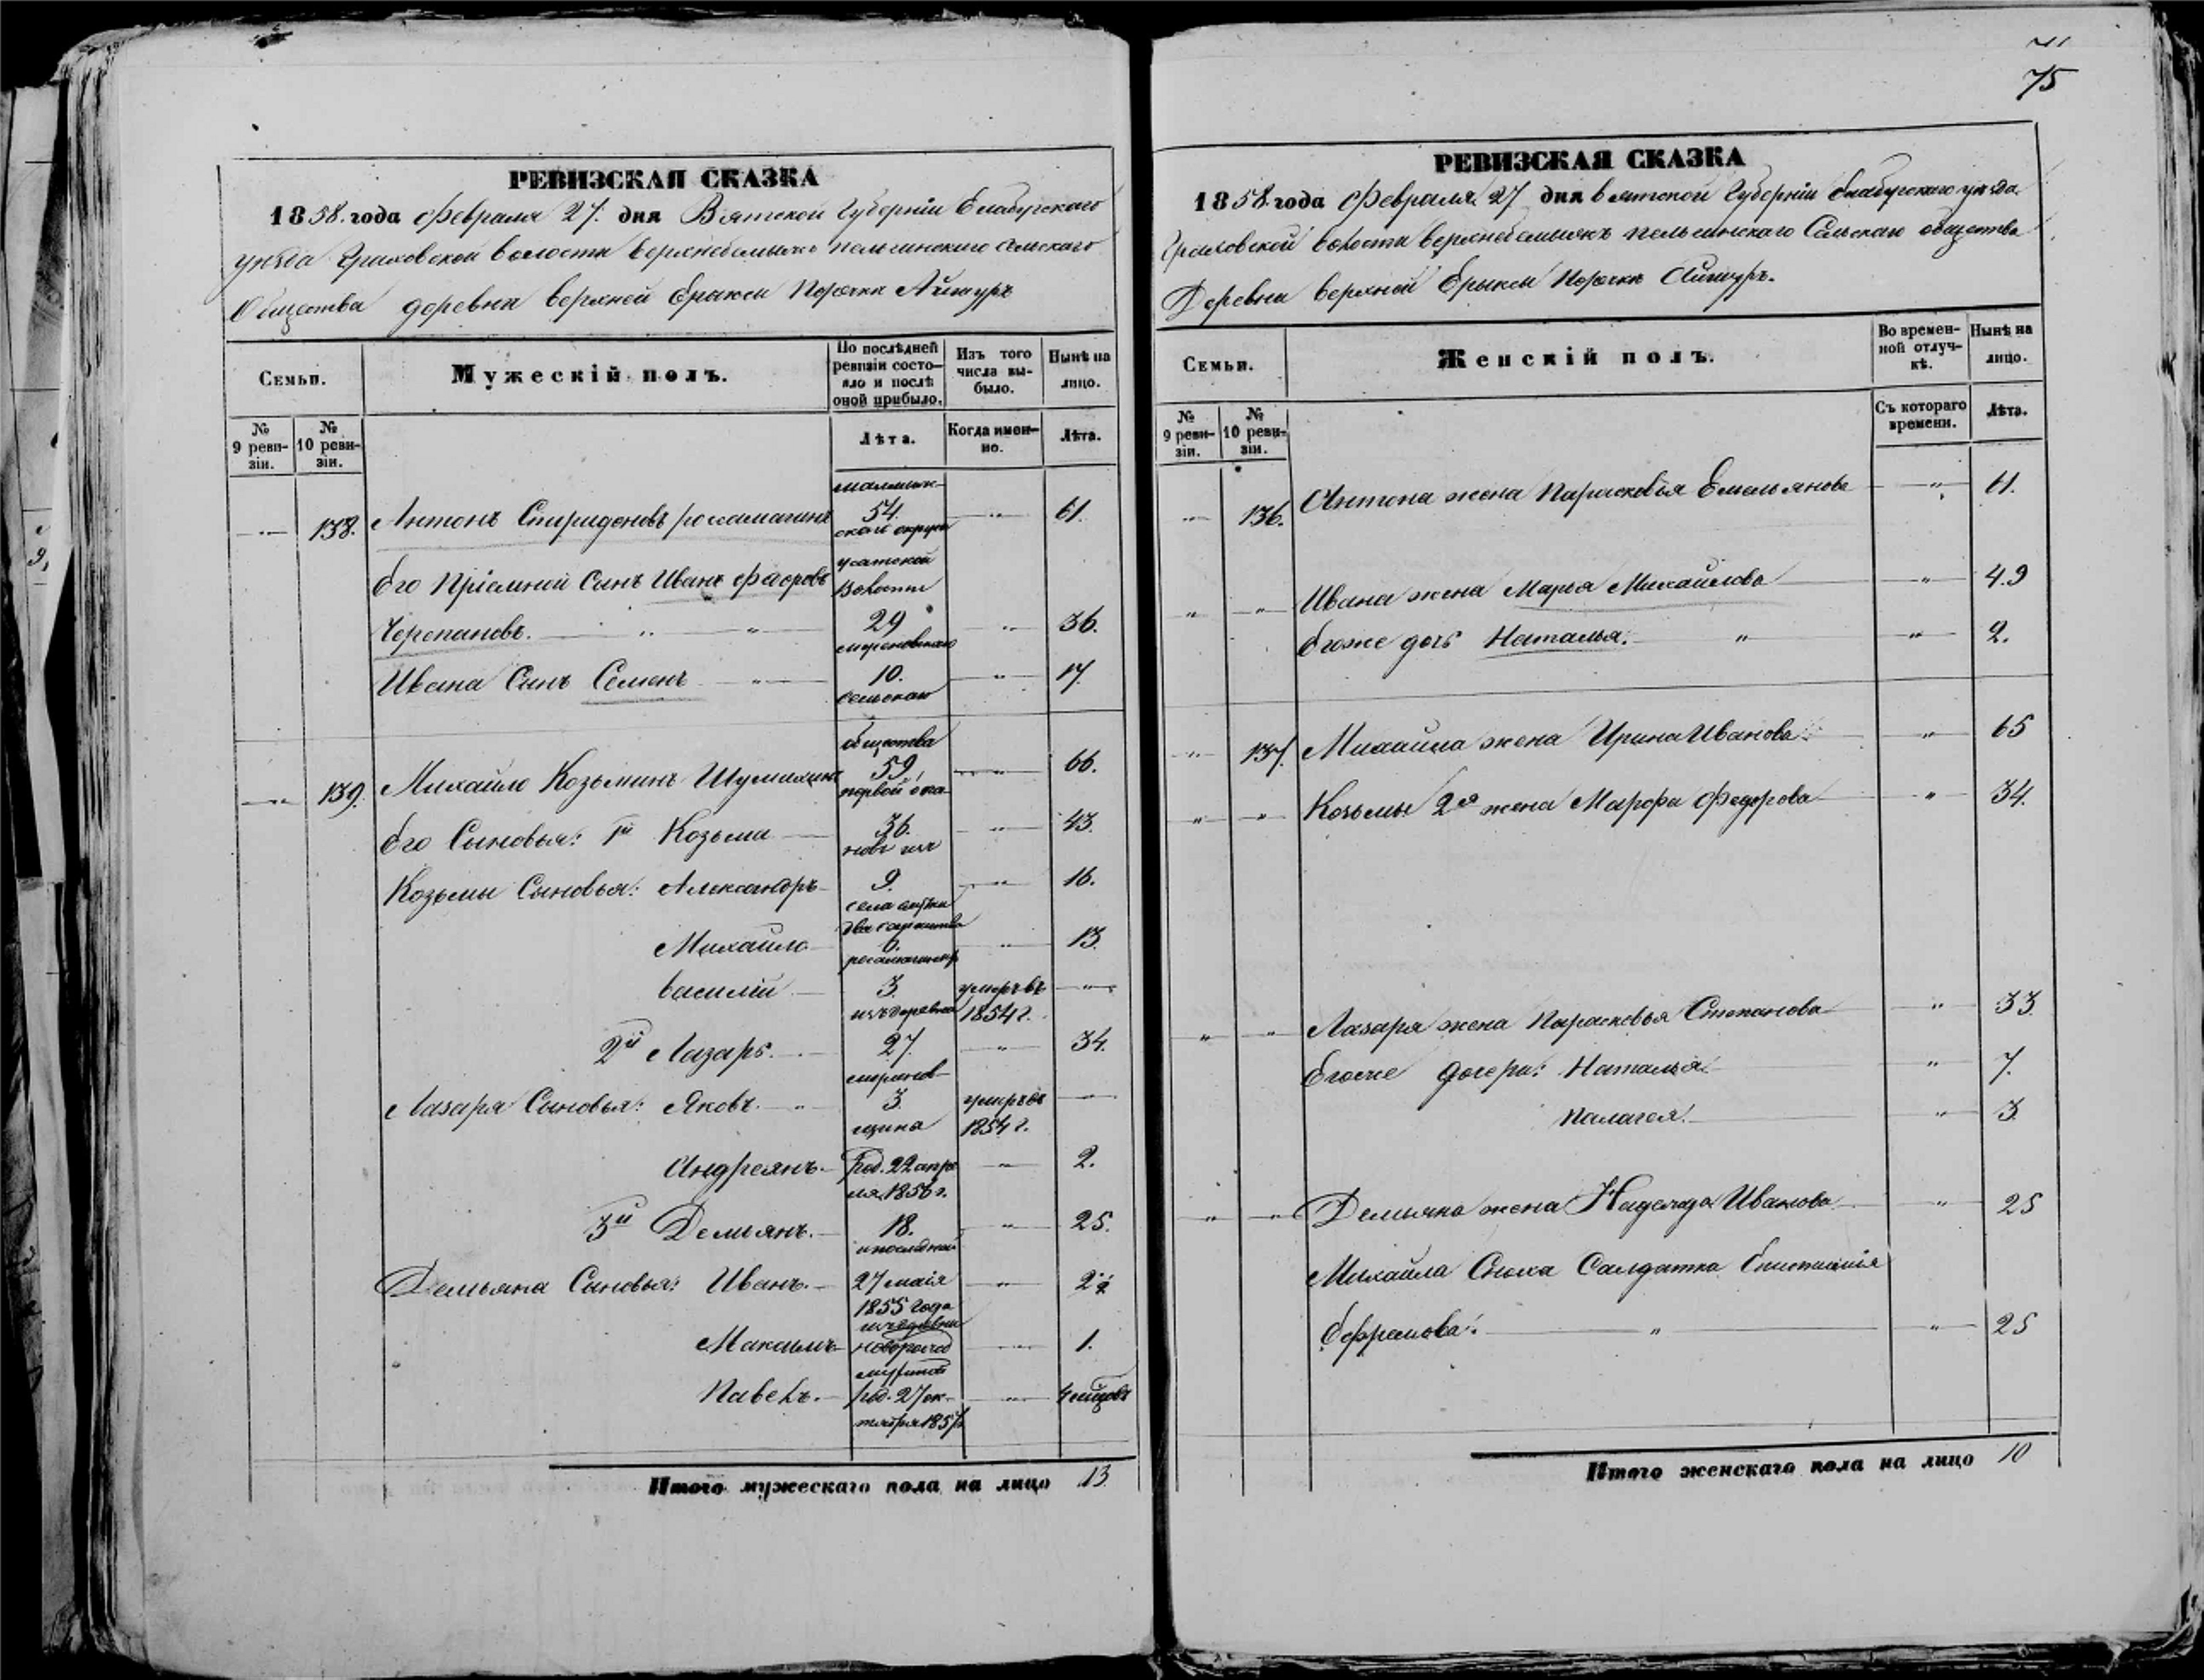 РЕВИЗСКАЯ СКАЗКА
1858. года Февраля 27. дня Вятской Губерніи Елабугскаго
уѣзда Граховской волости верхнебемыжъ пельгинскаго сельскаго
Общества деревни верхней Ерыксы Порѣчкѣ Айшуръ
Семьи.
Мужескій полъ.
По послѣдней ревизіи состояло и послѣ оной прибыло.
Изъ того числа выбыло.
Нынѣ на лицо.
№ 9 ревизіи.
№ 10 ревизіи.
Лѣта.
Когда именно.
Лѣта.
малмыж-
138. Антонъ Спиридоновъ росамагинъ 54. 61.
ской округи
усатской
Его Пріемный Сынъ Иванъ Федоровъ волости
Черепановъ. 29 36.
Ивана Сынъ Семенъ 10. 17.
сельскаго
общества
139. Михайло Козьминъ Шумихинъ 59 66.
первой ока-
Его Сыновья: 1й Козьма 36. 43.
новъ изъ
Козьмы Сыновья: Александръ 9. 16.
села
Михайло 6. 13.
Василій 3. умеръ въ
изъ деревни 1854 г.
2й Лазарь. 27. 34.
Лазаря Сыновья: Яковъ. 3. умеръ въ
щина 1854 г.
Андреянъ. Род. 22 апре- 2.
ля 1856 г.
3й Демьянъ. 18. 25.
Демьяна Сыновья: Иванъ. 27 маія 2
1855 года
Максимъ новорожд 1.
Павелъ. Род. 27 ок- 4 месцовъ
тября 1857
Итого мужескаго пола на лицо 13.
75
РЕВИЗСКАЯ СКАЗКА
1858. года Февраля 27 дня вятской Губерніи Елабугскаго уѣзда
Граховской волости верхнебемыжъ пельгинскаго Сельскаго общества
Деревни верхней Ерыксы Порѣчкѣ Айшуръ.
Семьи.
Женскій полъ.
Во временной отлучкѣ.
Нынѣ на лицо.
№ 9 ревизіи.
№ 10 ревизіи.
Съ котораго времени.
Лѣта.
136. Антона жена Парасковья Емельянова 61.
Ивана жена Марья Михайлова 49
Егоже дочь Наталья. 2.
137. Михаила жена Ирина Иванова 65
Козьмы 2я жена Марфа Федорова 34.
Лазаря жена Парасковья Степанова 33
Егоже дочери: Наталья 7.
Палагея. 3
Демьяна жена Надежда Иванова 25
Михайла Сноха Салдатка Епистимія
Ефремова. 25
Итого женскаго пола на лицо 10